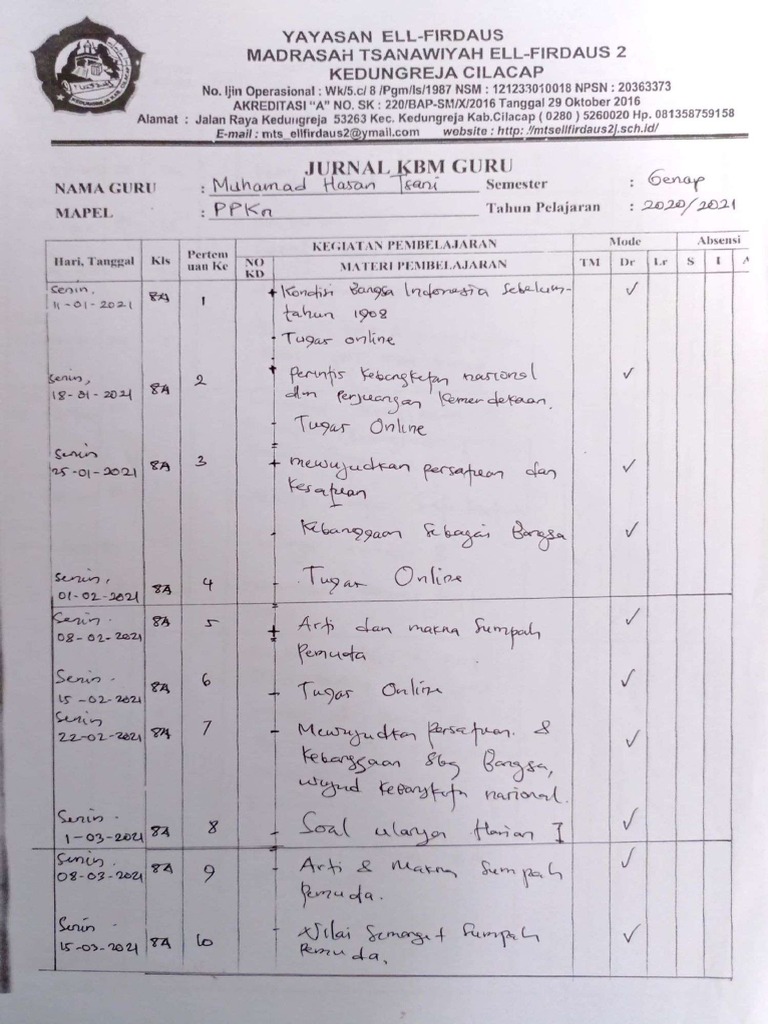 YAYASAN ELL-FIRDAUS
MADRASAH TSANAWIYAH ELL-FIRDAUS 2
KEDUNGREJA CILACAP
No. Ijin Operasional : Wk/5.c/ 8 /Pgm/Is/1987 NSM : 121233010018 NPSN : 20363373
AKREDITASI "A" NO. SK : 220/BAP-SM/X/2016 Tanggal 29 Oktober 2016
Alamat : Jalan Raya Kedungreja 53263 Kec. Kedungreja Kab.Cilacap ( 0280 ) 5260020 Hp. 081358759158
E-mail : mts_ellfirdaus2@ymail.com website : http: //mtsellfirdaus2j.sch.id/
JURNAL KBM GURU
NAMA GURU : Muhamad Hasan Tsani Semester : Genap
MAPEL : PPKn Tahun Pelajaran : 2020/2021
Hari, Tanggal Kls Pertem uan Ke KEGIATAN PEMBELAJARAN Mode Absensi
NO KD MATERI PEMBELAJARAN TM Dr Lr S I A
Senin, + Kondisi Bangsa Indonesia Sebelum ✓
11-01-2021 8A 1 tahun 1908
- Tugas online
Senin, 2 + perintis Kebangkitan nasional ✓
18-01-2021 8A dlm perjuangan Kemerdekaan.
- Tugas Online
Senin
25-01-2021 8A 3 + mewujudkan persatuan dan ✓
Kesatuan
- Kebanggaan Sebagai Bangsa ✓
Senin, 4 - Tugas Online
01-02-2021 8A
Senin - 8A 5 + Arti dan makna Sumpah ✓
08-02-2021 Pemuda
Senin - 6 ✓
15-02-2021 8A - Tugas Online
Senin
22-02-2021 8A 7 - Mewujudkan persatuan & ✓
Kebanggaan Sbg Bangsa,
wujud Kebangkitn nasional.
Senin -
1-03-2021 8A 8 - Soal ulangan Harian I ✓
Senin - 8A 9 - Arti & Makna Sumpah ✓
08-03-2021 Pemuda.
Senin - - Nilai Semangat Sumpah ✓
15-03-2021 8A 10 Pemuda.